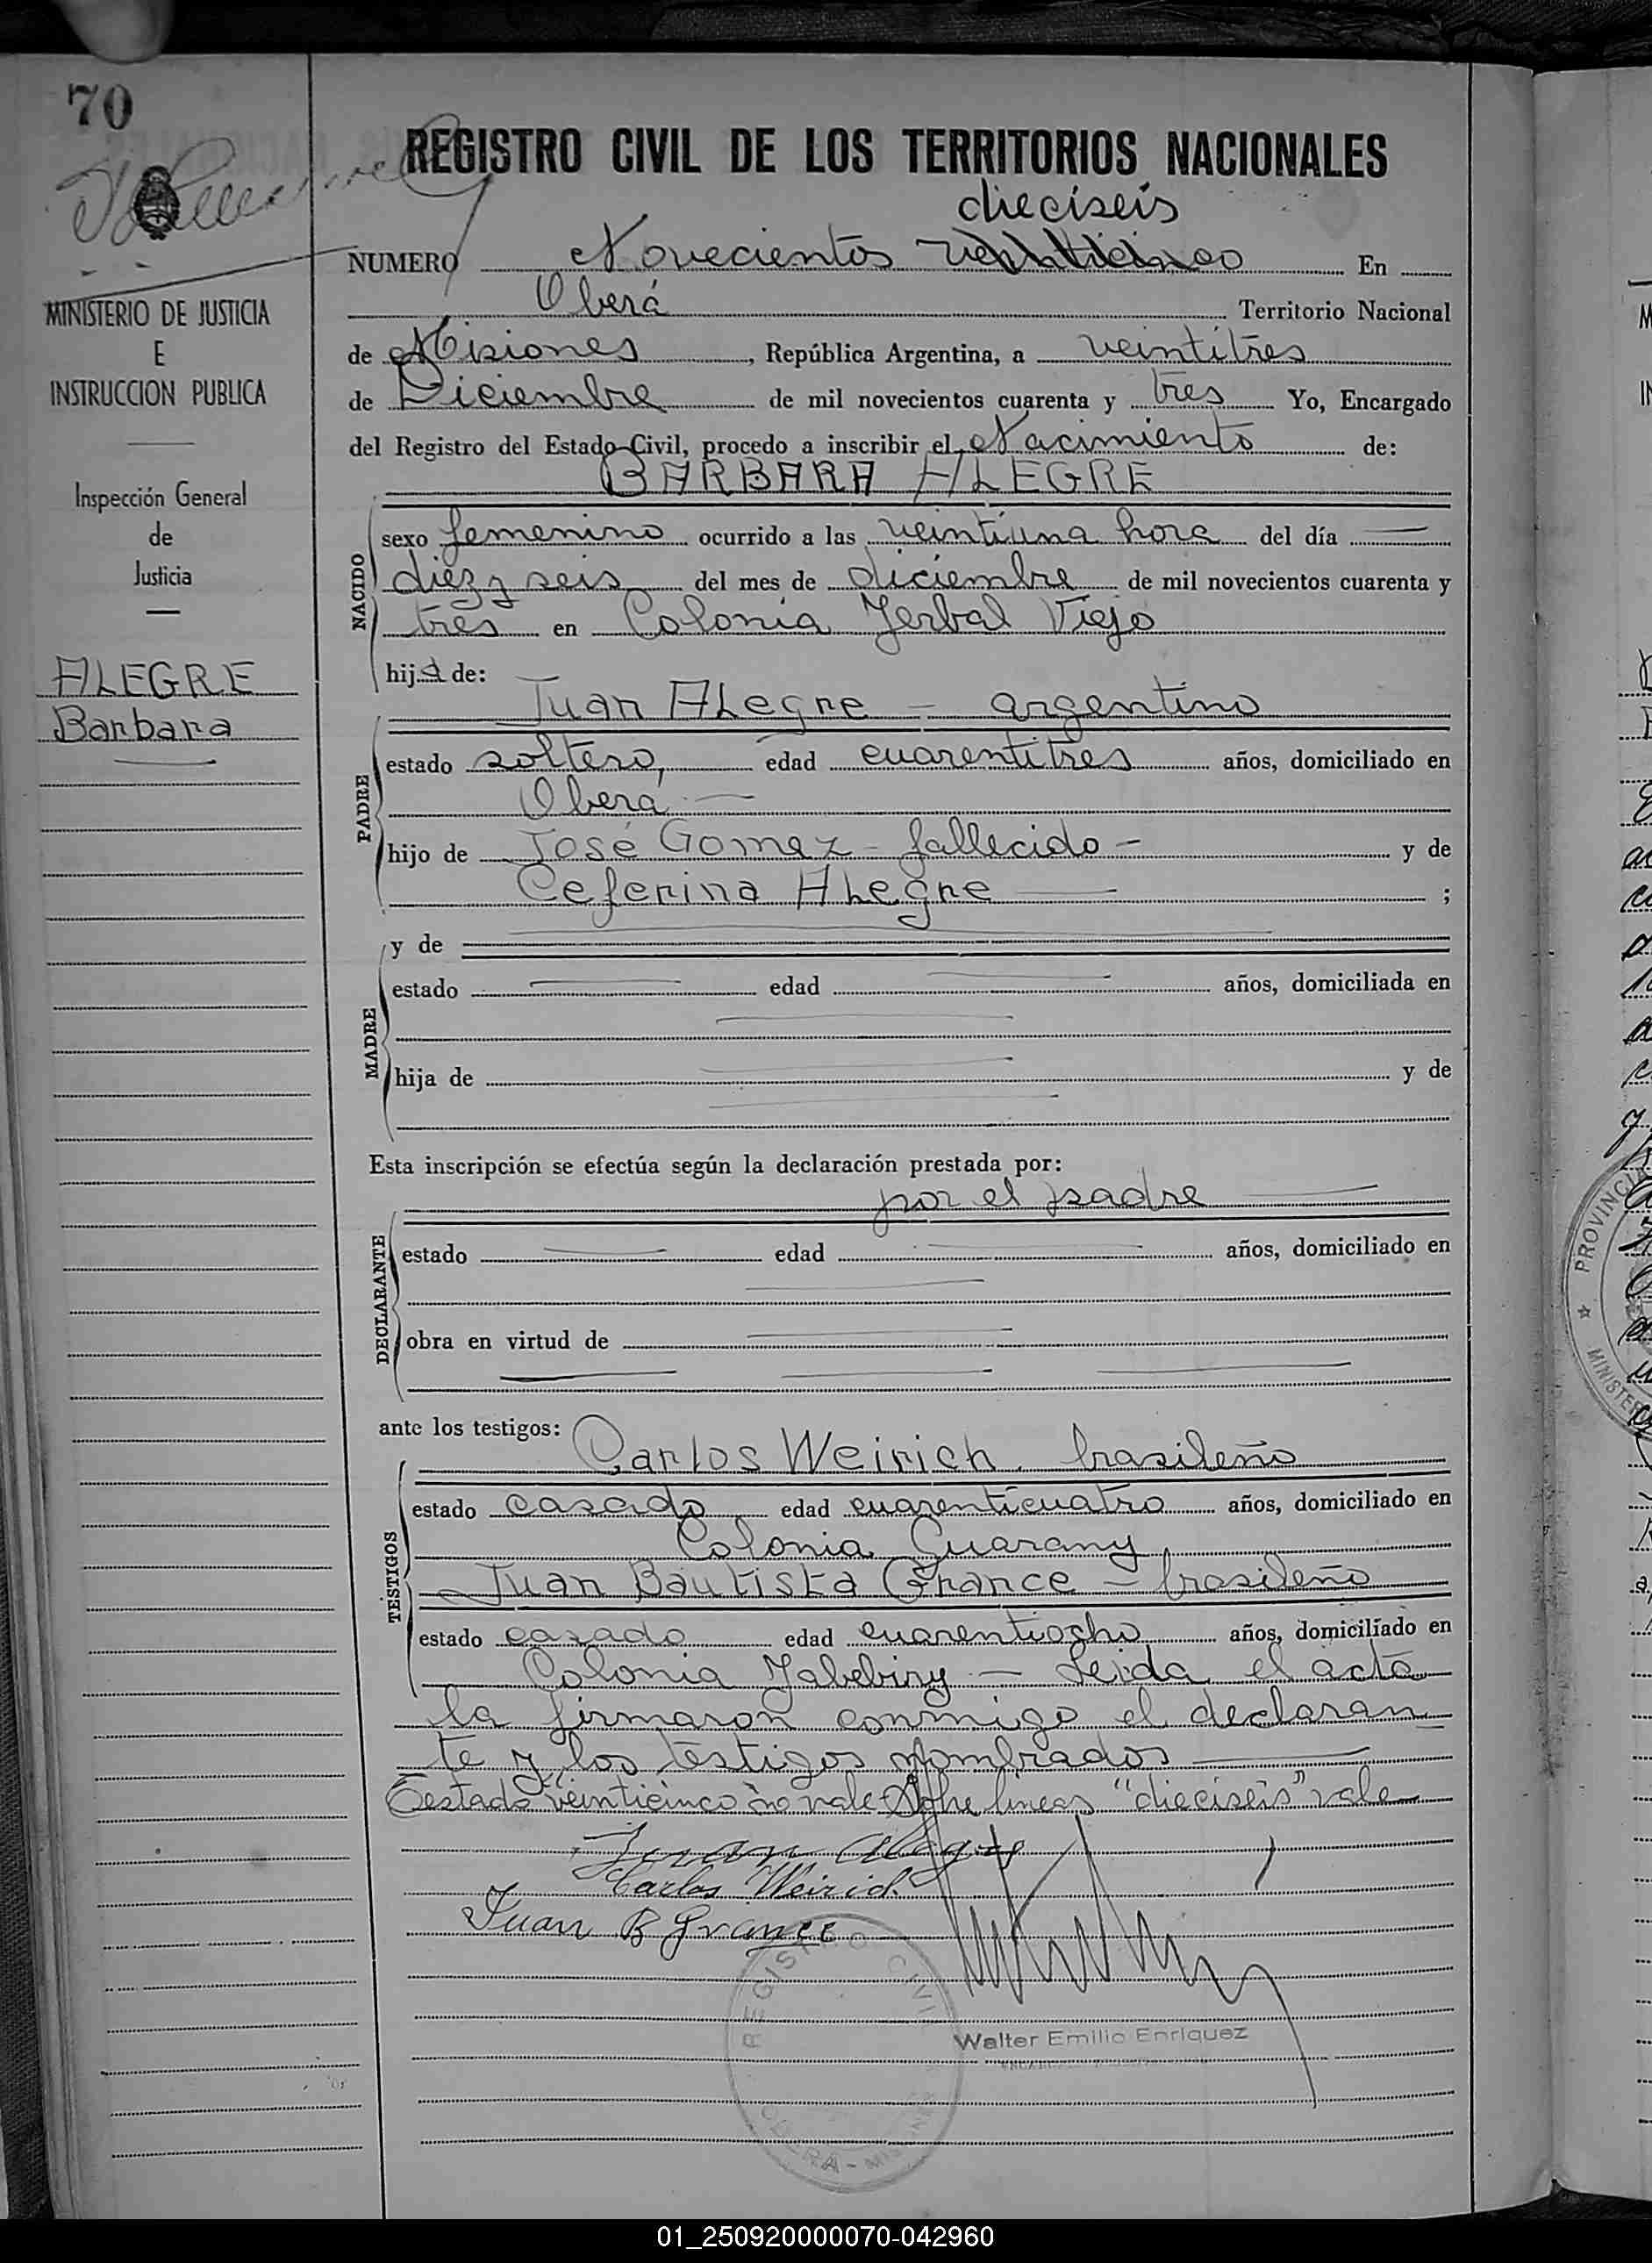 70
REGISTRO CIVIL DE LOS TERRITORIOS NACIONALES
dieciseis
NUMERO Novecientos veinticinco En
Oberá Territorio Nacional
de Misiones, República Argentina, a veintitres
de Diciembre de mil novecientos cuarenta y tres Yo, Encargado
del Registro del Estado Civil, procedo a inscribir el Nacimiento de:
BARBARA ALEGRE
sexo femenino ocurrido a las veintiuna hora del día
diez y seis del mes de diciembre de mil novecientos cuarenta y
tres en Colonia Yerbal Viejo
hija de:
NACIDO
Juan ALegre - argentino
estado soltero, edad cuarentitres años, domiciliado en
Oberá
hijo de José Gomez - fallecido - y de
Ceferina ALegre ;
PADRE
y de
estado edad años, domiciliada en
hija de y de
MADRE
Esta inscripción se efectúa según la declaración prestada por:
por el padre
estado edad años, domiciliado en
obra en virtud de
DECLARANTE
ante los testigos:
Carlos Weirich. brasileño
estado casado edad cuarenticuatro años, domiciliado en
Colonia Guarany
Juan Bautista Grance - brasileño
estado casado edad cuarentiocho años, domiciliado en
TESTIGOS
Colonia Yabebiry - Leida el acta
la firmaron conmigo el declaran
te y los testigos nombrados
Testado "veinticinco" no vale - Sobre lineas "dieciseis" vale
Juan Alegre
Carlos Weirich
Juan B Grance
REGISTRO CIVIL
OBERÁ - MISIONES
Walter Emilio Enriquez
MINISTERIO DE JUSTICIA
E
INSTRUCCION PUBLICA
Inspección General
de
Justicia
ALEGRE
Barbara
PROVINCIA
MINISTER
01_250920000070-042960